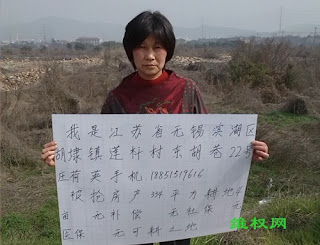 我是江苏省无锡滨湖区
胡埭镇莲杆村东胡巷22号
庄荷英手机18851519616
被抢房产334平方耕地4
亩 无补偿 无社保 无
医保 无可耕之地
维权网